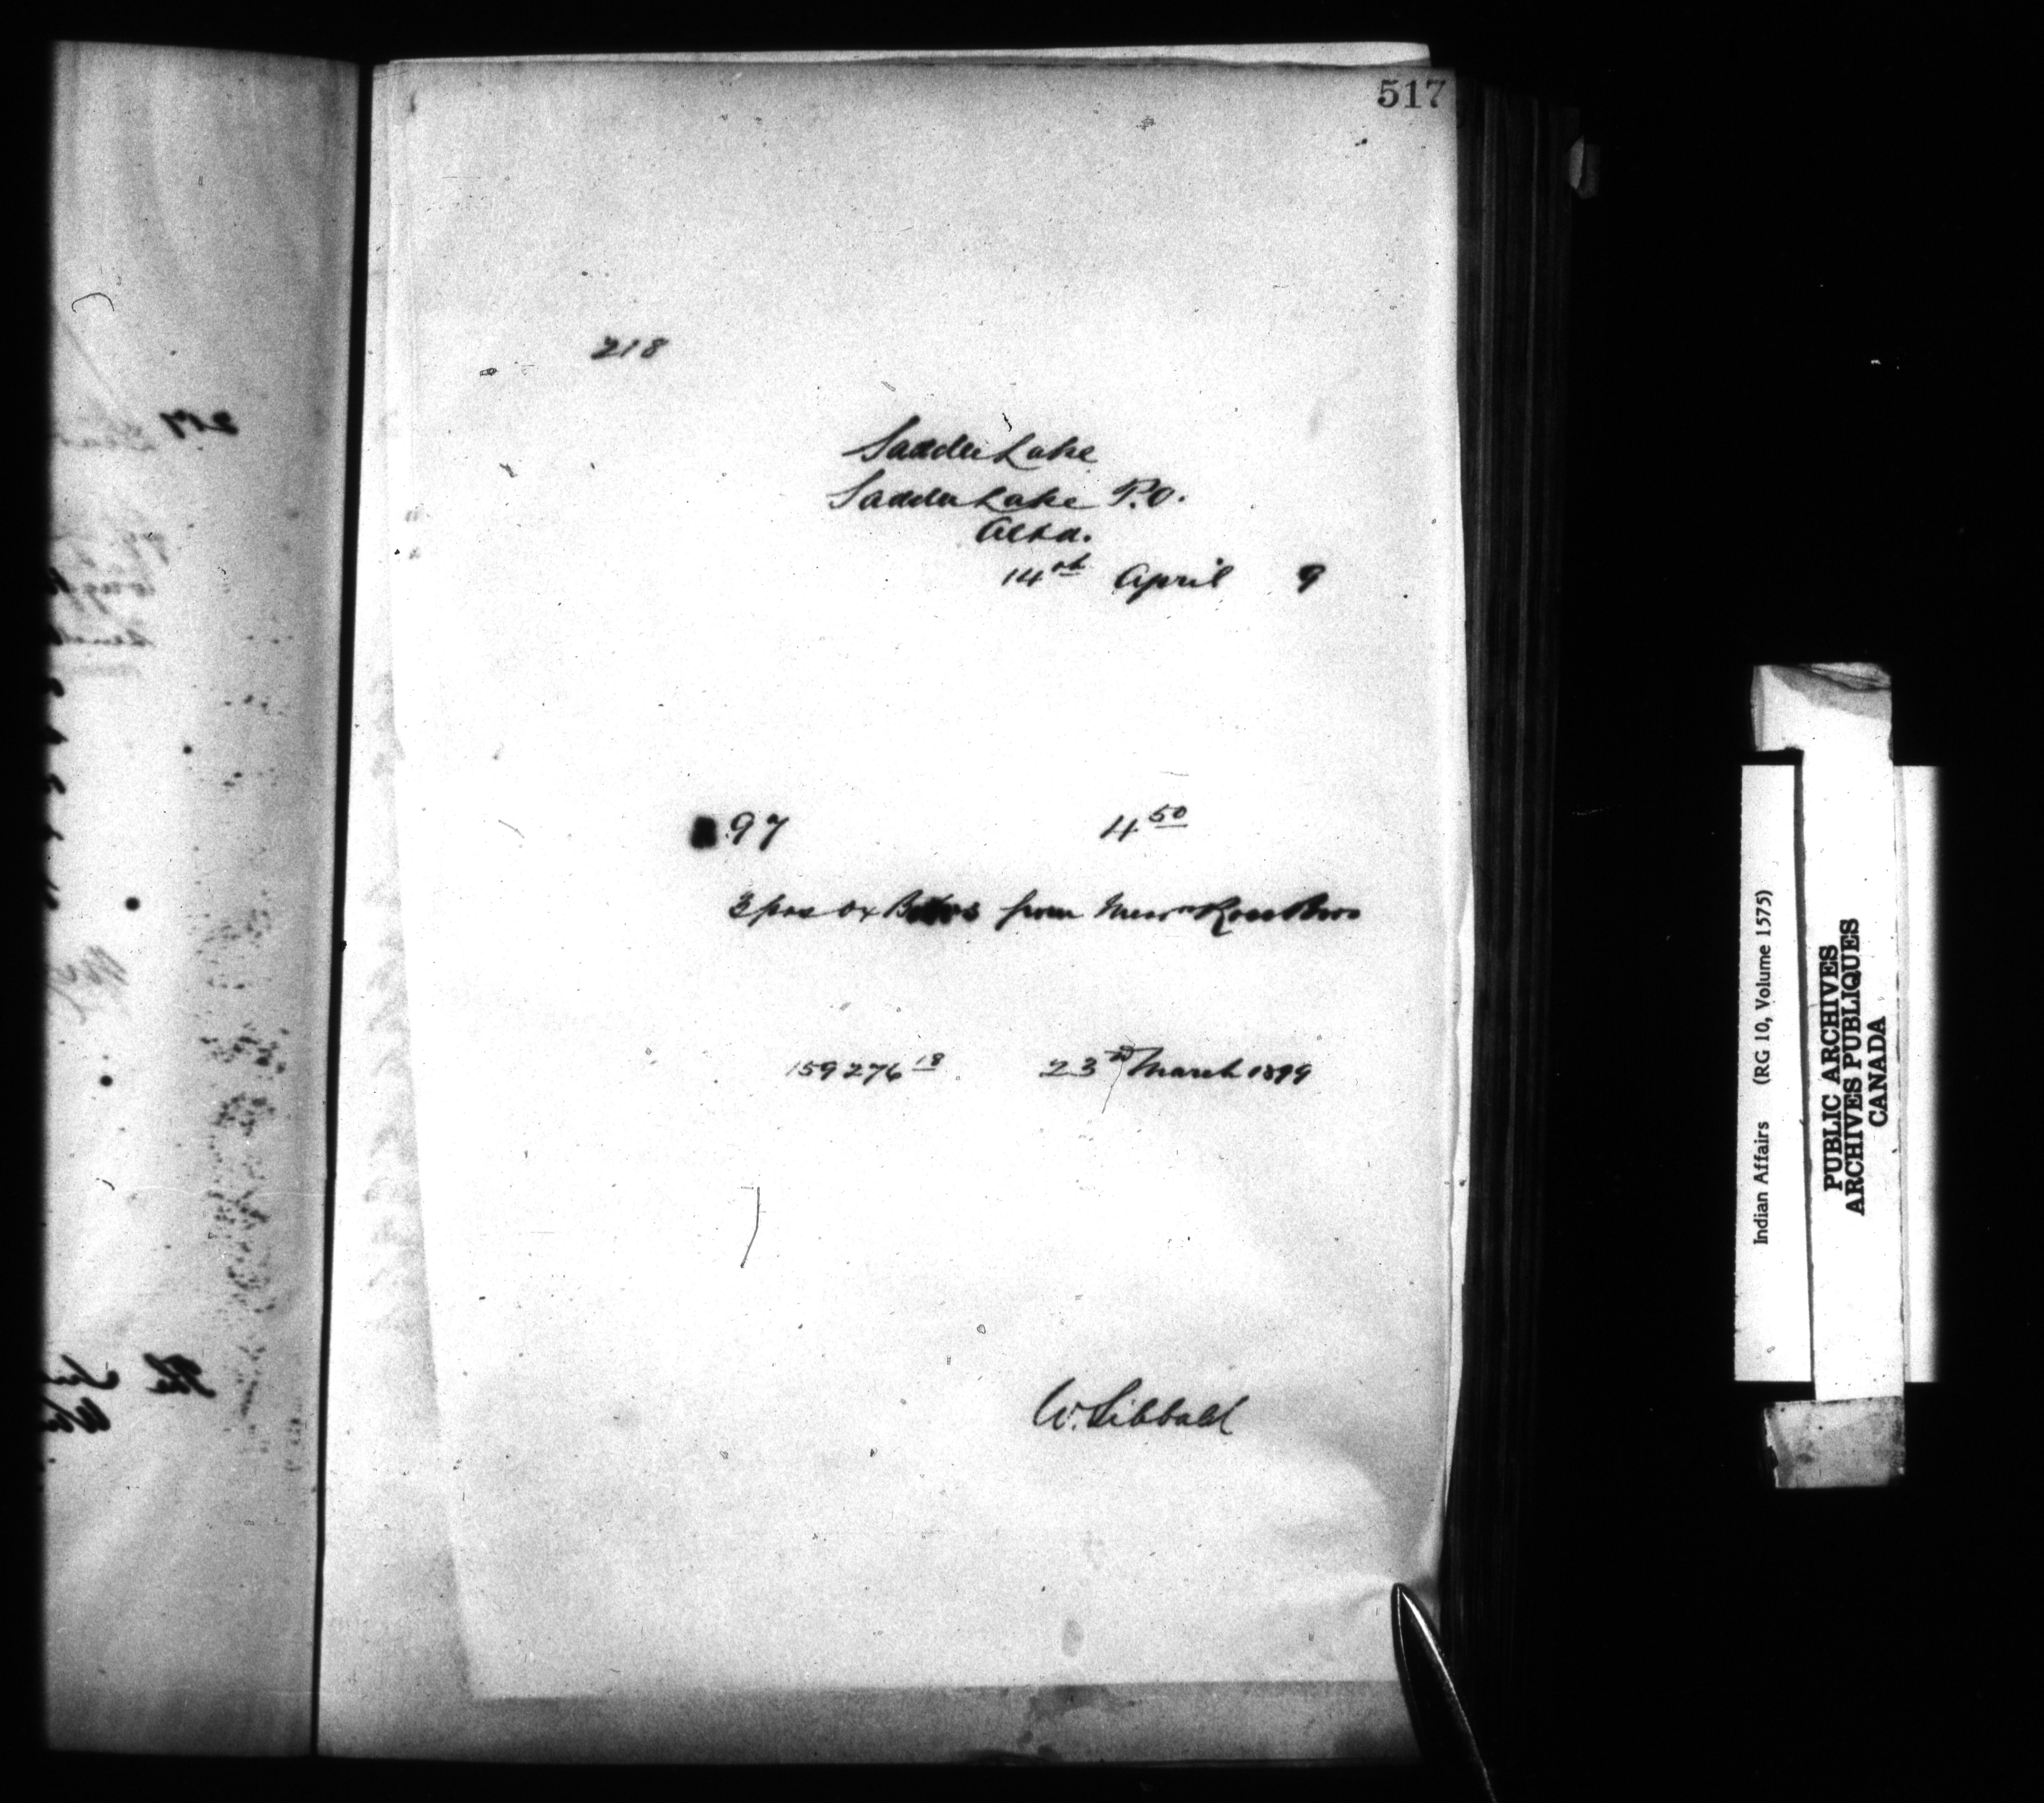 517
218
Saddle Lake
Saddle Lake P.O.
Alta.
14th April 9
97 4 50
3 prs Ox from Messrs Ross Bros
159276 18 23rd March 1899
W. Sibbald
Indian Affairs (RG 10, Volume 1575)
PUBLIC ARCHIVES
ARCHIVES PUBLIQUES
CANADA